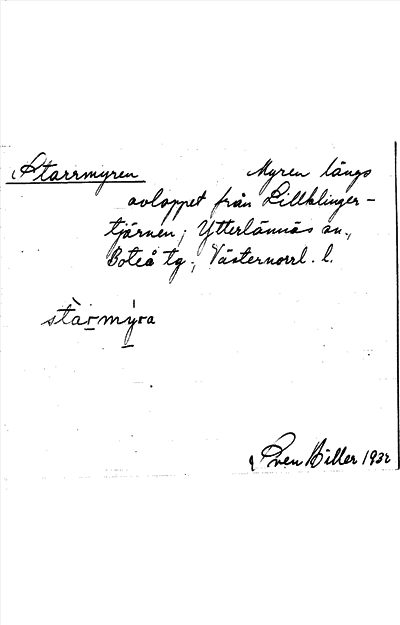 Starrmyren Myren längs
avloppet från Lillklinger-
tjärnen; Ytterlännäs sn.,
Boteå tg., Västernorrl. l.
stàrmýra
Sven Biller 1932